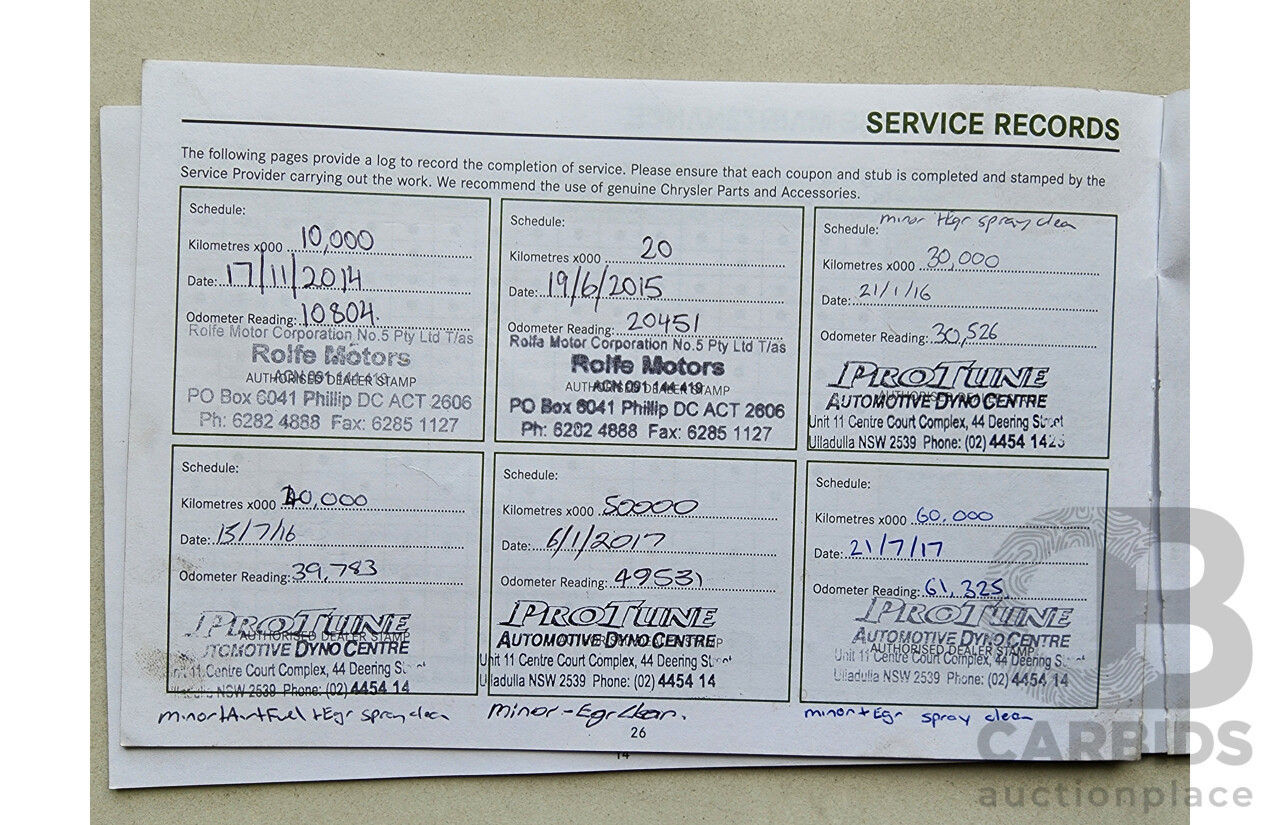 SERVICE RECORDS
The following pages provide a log to record the completion of service. Please ensure that each coupon and stub is completed and stamped by the
Service Provider carrying out the work. We recommend the use of genuine Chrysler Parts and Accessories.
Schedule:
Kilometres x000 10,000
Date: 17/11/2014
Odometer Reading: 10804.
Rolfe Motor Corporation No.5 Pty Ltd T/as
Rolfe Motors
ACN 091 144 419
AUTHORISED DEALER STAMP
PO Box 6041 Phillip DC ACT 2606
Ph: 6282 4888 Fax: 6285 1127
Schedule:
Kilometres x000 20
Date: 19/6/2015
Odometer Reading: 20451
Rolfe Motor Corporation No.5 Pty Ltd T/as
Rolfe Motors
ACN 091 144 419
AUTHORISED DEALER STAMP
PO Box 6041 Phillip DC ACT 2606
Ph: 6282 4888 Fax: 6285 1127
minor + Egr spray clean
Schedule:
Kilometres x000 30,000
Date: 21/1/16
Odometer Reading: 30,526
PROTUNE
AUTOMOTIVE DYNO CENTRE
Unit 11 Centre Court Complex, 44 Deering Street
Ulladulla NSW 2539 Phone: (02) 4454 1425
Schedule:
Kilometres x000 40,000
Date: 15/7/16
Odometer Reading: 39,783
PROTUNE
AUTHORISED DEALER STAMP
AUTOMOTIVE DYNO CENTRE
11 Centre Court Complex, 44 Deering
NSW 2539 Phone: (02) 4454 14
minor + Air + Fuel + Egr spray clean
Schedule:
Kilometres x000 50000
Date: 6/1/2017
Odometer Reading: 49531
PROTUNE
AUTOMOTIVE DYNO CENTRE
Unit 11 Centre Court Complex, 44 Deering
Ulladulla NSW 2539 Phone: (02) 4454 14
Minor - Egr clean.
Schedule:
Kilometres x000 60,000
Date: 21/7/17
Odometer Reading: 61,325
PROTUNE
AUTOMOTIVE DYNO CENTRE
AUTHORISED DEALER STAMP
Unit 11 Centre Court Complex, 44 Deering
Ulladulla NSW 2539 Phone: (02) 4454 14
minor + Egr spray clean
26
14
CARBIDS
auctionplace